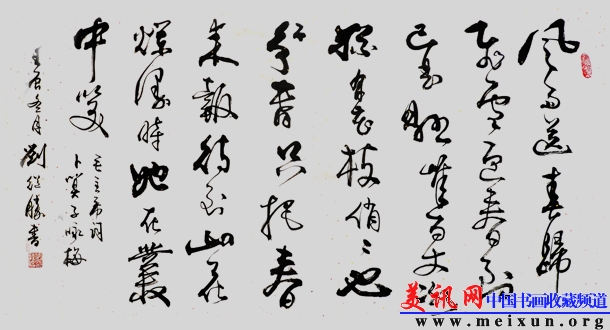 风雨送春归
飞雪迎春到
已是悬崖百丈冰
犹有花枝俏俏也
不争春只把春
来报待到山花
烂漫时她在丛
中笑
毛主席词
卜算子咏梅
壬辰冬月 刘 胜书
美讯网 中国书画收藏频道
www.meixun.org